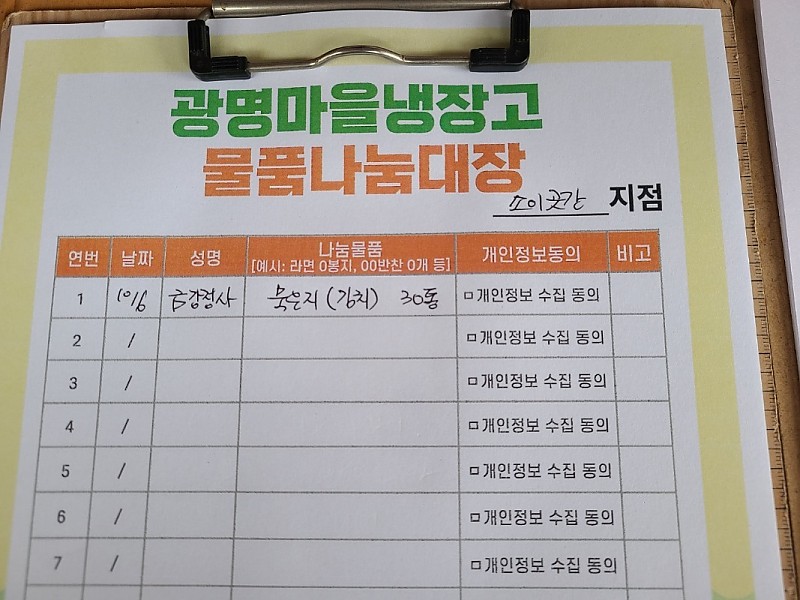 광명마을냉장고
물품나눔대장
소이곳간 지점
연번 날짜 성명 나눔물품 개인정보동의 비고
[예시: 라면 0봉지, 00반찬 0개 등]
1 10/6 금강정사 묵은지(김치) 30통 □개인정보 수집 동의
2 / □개인정보 수집 동의
3 / □개인정보 수집 동의
4 / □개인정보 수집 동의
5 / □개인정보 수집 동의
6 / □개인정보 수집 동의
7 / □개인정보 수집 동의